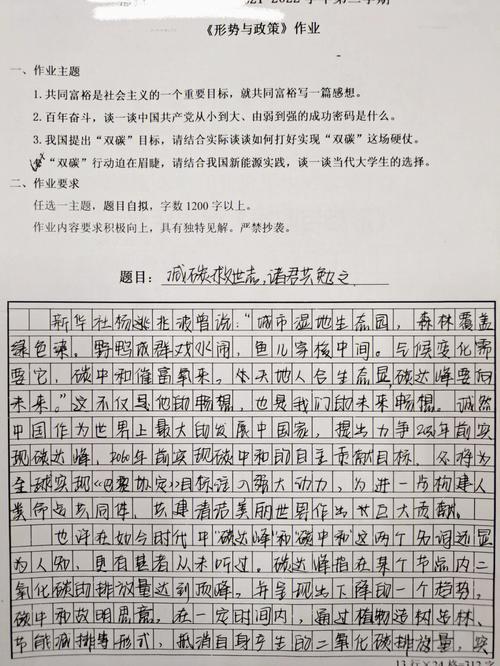 2021-2022 学年第二学期
《形势与政策》作业
一、作业主题
1.共同富裕是社会主义的一个重要目标，就共同富裕写一篇感想。
2.百年奋斗，谈一谈中国共产党从小到大、由弱到强的成功密码是什么。
3.我国提出“双碳”目标，请结合实际谈谈如何打好实现“双碳”这场硬仗。
“双碳”行动迫在眉睫，请结合我国新能源实践，谈一谈当代大学生的选择。
二、作业要求
任选一主题，题目自拟，字数 1200 字以上。
作业内容要求积极向上，具有独特见解。严禁抄袭。
题目：减碳救世志，诸君共勉之
新华社杨逃兆波曾说：“城市湿地生态园，森林覆盖
绿色臻。野鸭成群戏水闹，鱼儿穿梭中间。气候变化需
要它，碳中和催富氧来。今天地人合生态显，碳达峰要向
未来。”这不仅是他的畅想，也是我们的未来畅想。诚然
中国作为世界上最大的发展中国家，提出力争2030年前实
现碳达峰，2060年前实现碳中和的自主贡献目标，必将为
全球实现《巴黎协定》目标注入强大动力，为进一步构建人
类命运共同体，共建清洁美丽世界作出巨大贡献。
也许在如今时代中“碳达峰”和“碳中和”这两个名词还显
为人知，更有甚者从未听过。碳达峰指在某个节点内二
氧化碳的排放量达到顶峰，并呈现出下降的一个趋势。
碳中和故明思意，在一定时间内，通过植物造树造林、
节能减排等形式，抵消自身产生的二氧化碳排放量，实
13 行×24 格=312 字